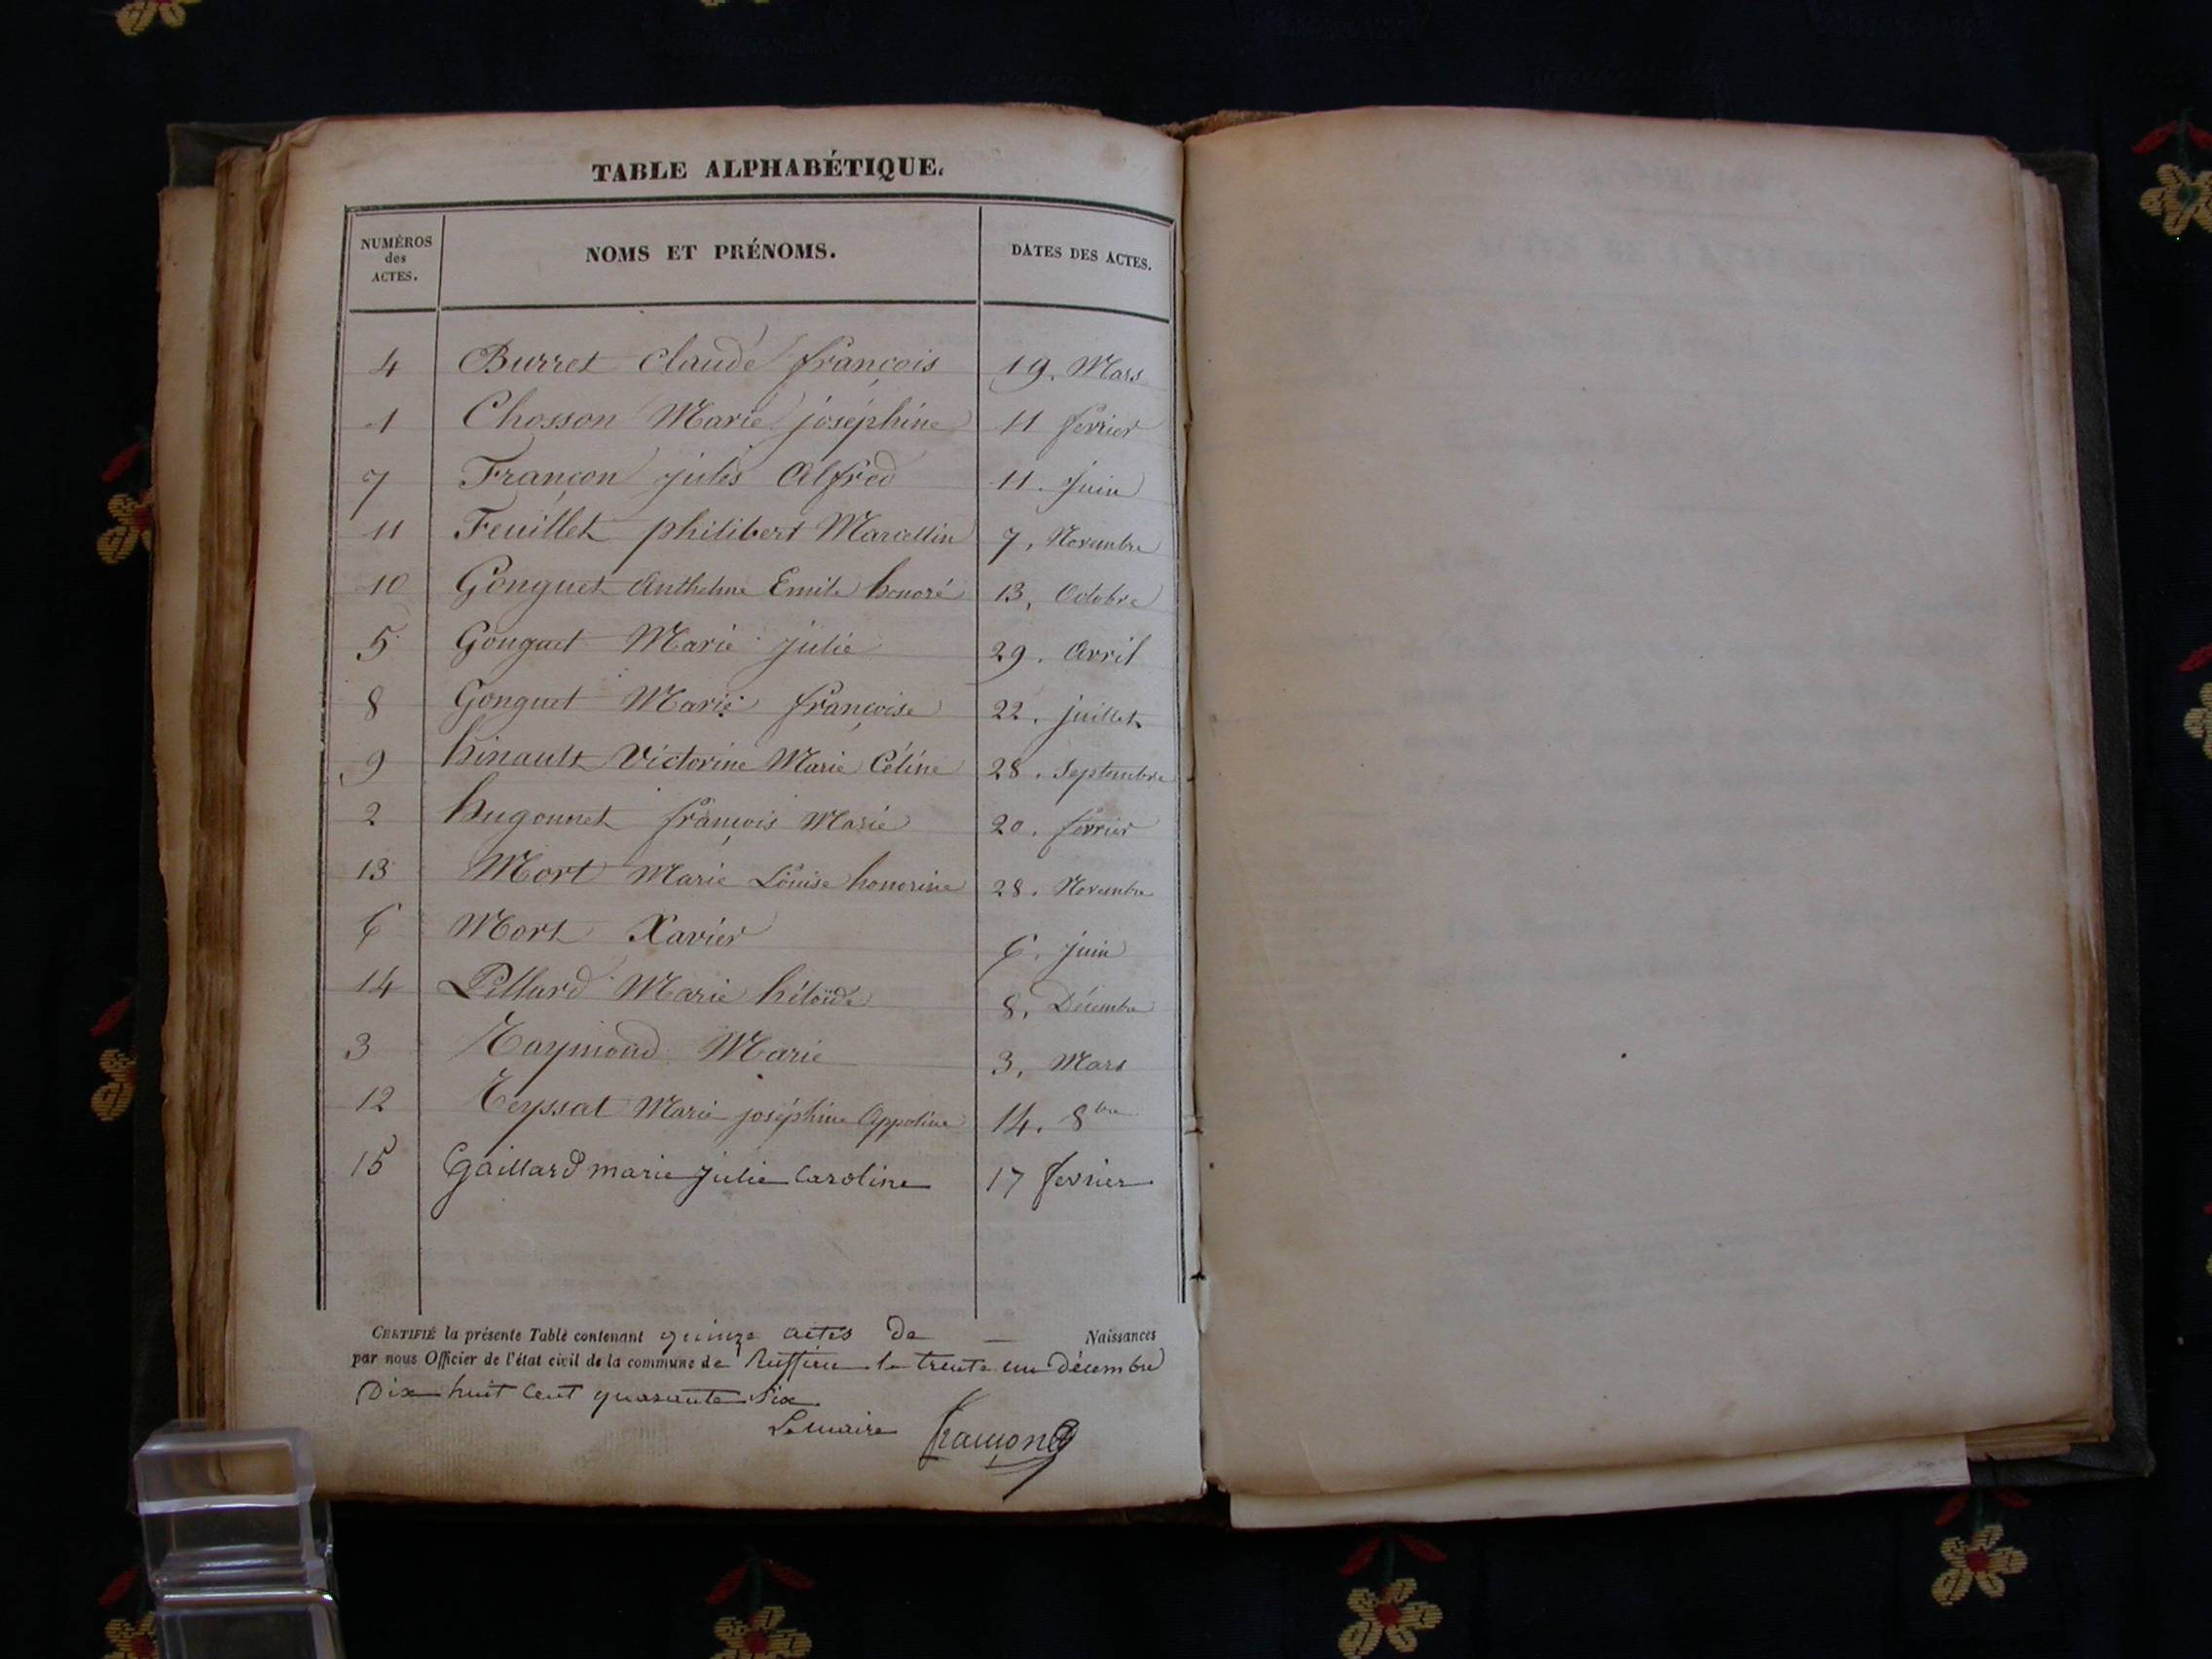 TABLE ALPHABÉTIQUE.
NUMÉROS des ACTES. NOMS ET PRÉNOMS. DATES DES ACTES.
4 Burret Claude françois 19. Mars
1 Chosson Marie joséphine 11 fevrier
7 Françon jules Alfred 11. juin
11 Feuillet philibert Marcellin 7, Novembre
10 Gonguet Anthelme Emile honoré 13, Octobre
5 Gonguet Marie julie 29. Avril
8 Gonguet Marie françoise 22. juillet
9 hinault Victorine Marie Céline 28. Septembre
2 hugonnet françois Marie 20. fevrier
13 Mort Marie Louise honorine 28. Novembre
6 Mort Xavier 6. juin
14 Pillard Marie héloïde 8, Décembre
3 Raymond Marie 3, Mars
12 Reyssat Marie joséphine Appoline 14. 8bre
15 Gaillard marie julie Caroline 17 fevrier
CERTIFIÉ la présente Table contenant quinze actes de — Naissances
par nous Officier de l'état civil de la commune de Ruffieu le trente un Décembre
Dix huit Cent quarante Six
Le maire